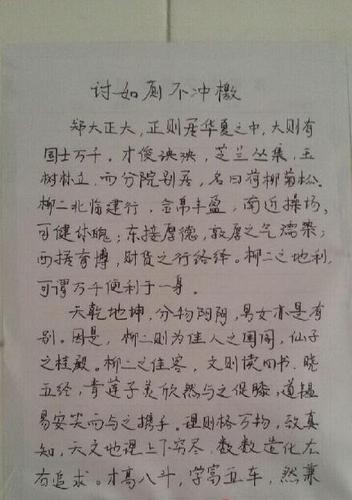 讨如厕不冲檄
郑大正大,正则居华夏之中,大则有
国士万千。才俊泱泱,芝兰丛集,玉
树林立,而分院别居,名曰荷柳菊松。
柳二北临建行,金帛丰盈,南近操场,
可健体魄;东接厚德,敦厚之气濡染;
西接育博,财货之行络绎。柳二之地利,
可谓万千便利于一身。
天乾地坤,分物阴阳,男女亦是有
别。因是,柳二则为佳人之闺阁,仙子
之桂殿。柳二之佳客,文则读四书、晓
五经,青莲子美欣然与之促膝,道韫
易安笑而与之携手。理则格万物,致真
知,天文地理上下穷尽,数数造化左
右追求。才高八斗,学富五车,然兼